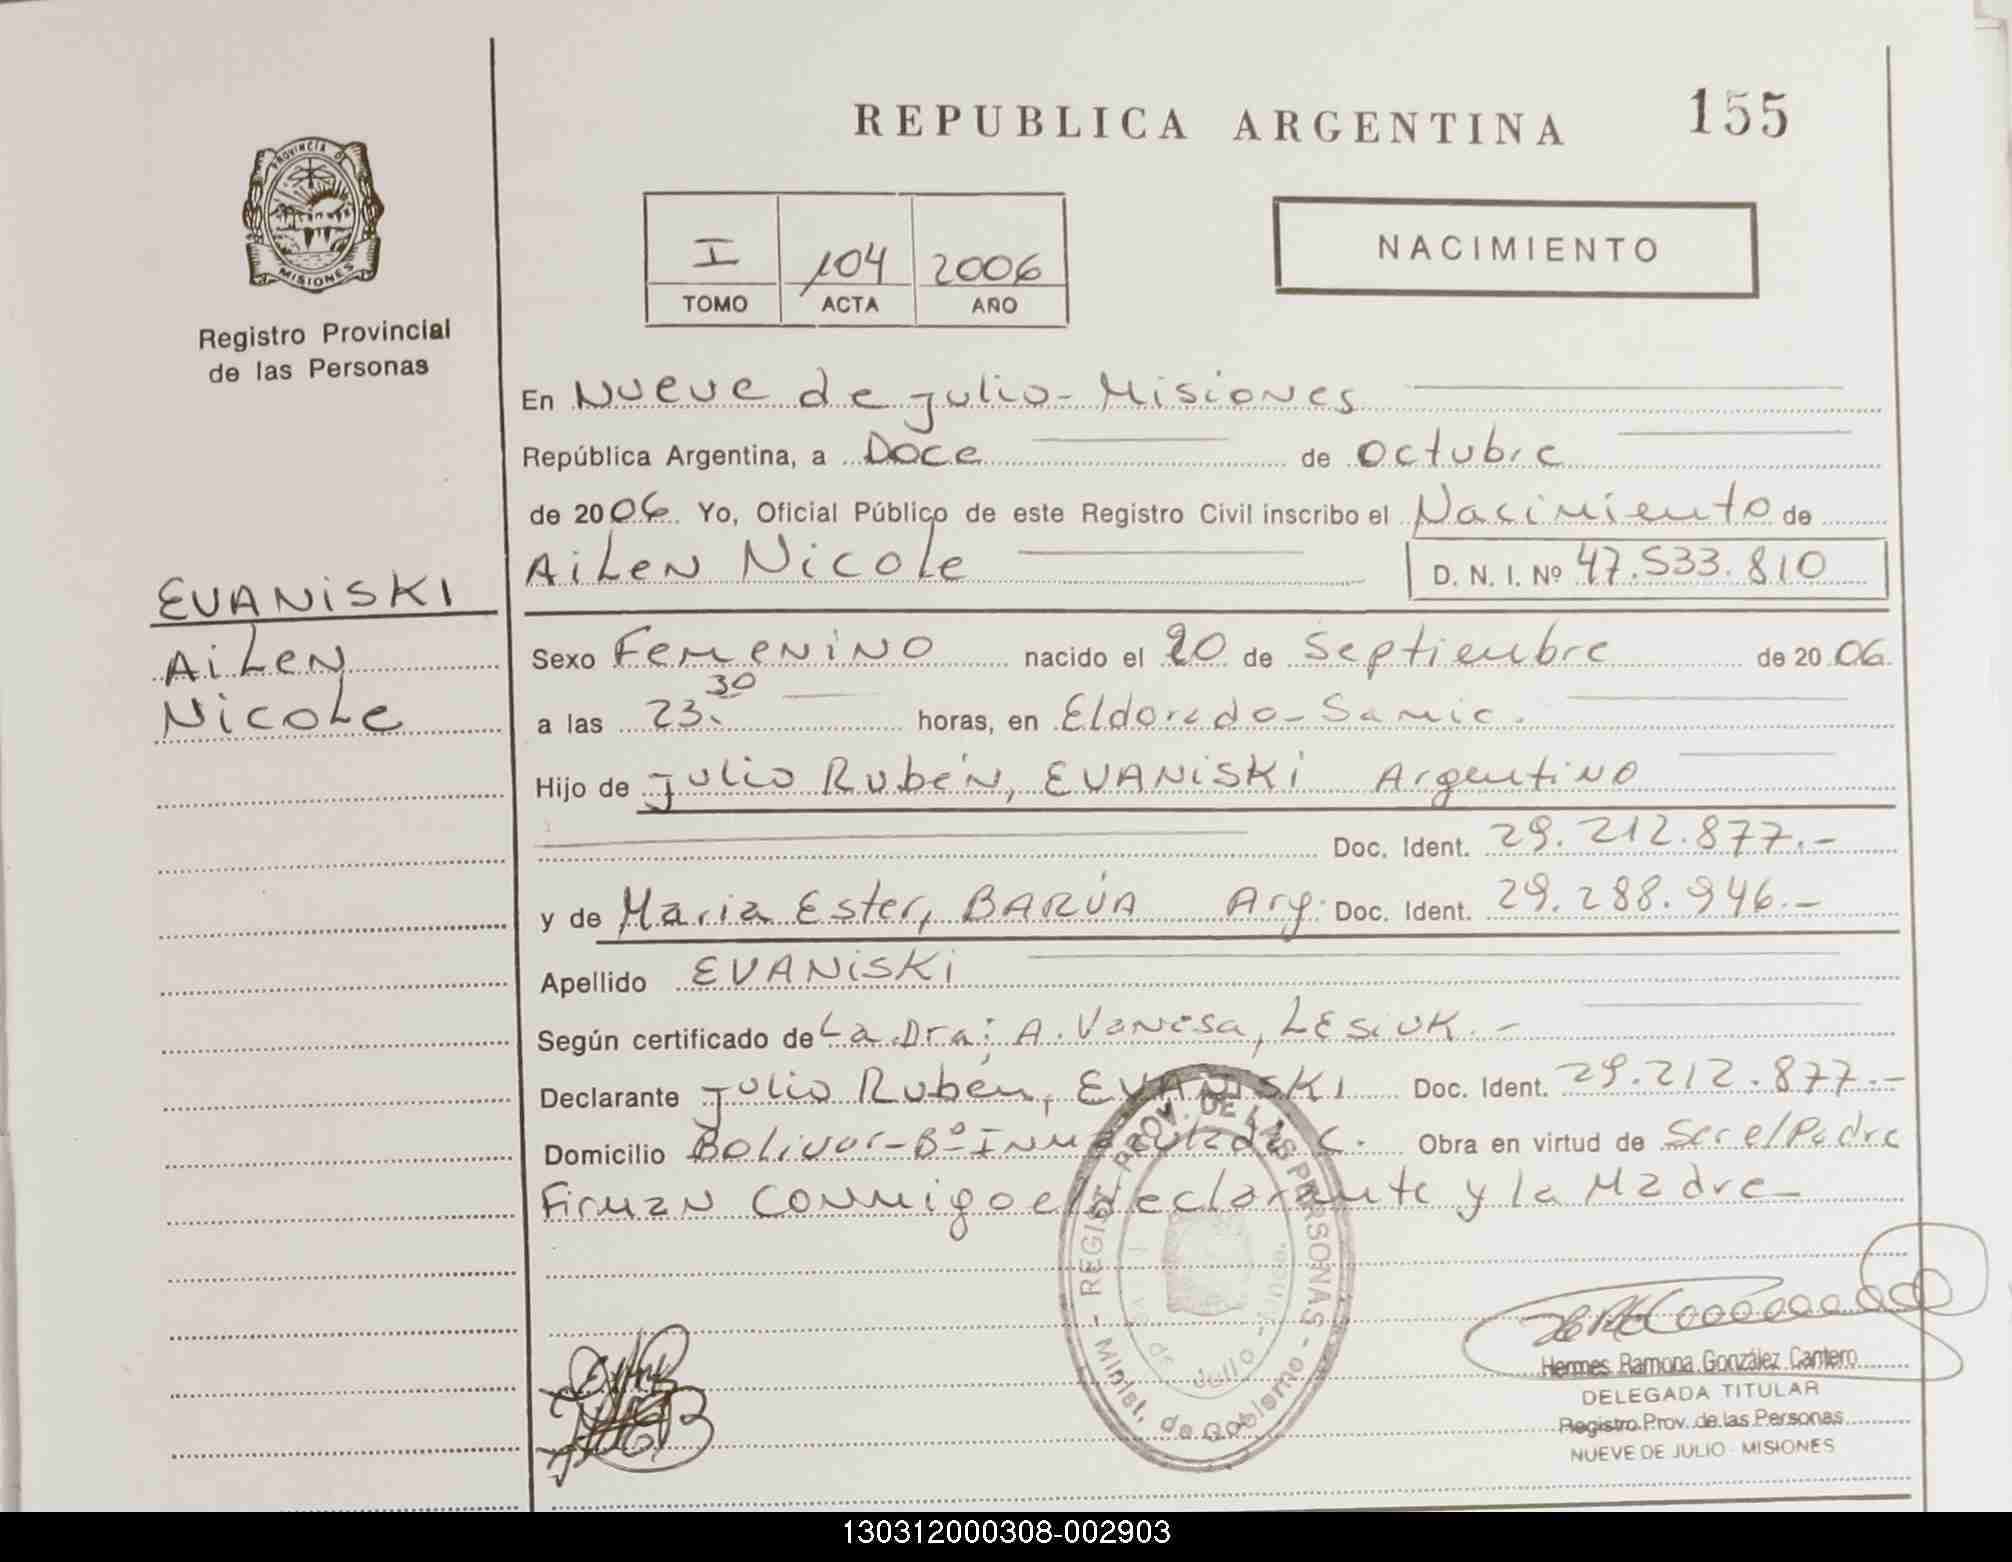 REPUBLICA ARGENTINA
155
PROVINCIA DE
MISIONES
Registro Provincial
de las Personas
I 104 2006
TOMO ACTA AÑO
NACIMIENTO
En Nueve de julio - Misiones
República Argentina, a Doce de Octubre
de 2006 Yo, Oficial Público de este Registro Civil inscribo el Nacimiento de
AiLen Nicole
D. N. I. Nº 47.533.810
EVANiSKI
AiLen
Nicole
Sexo Femenino nacido el 20 de Septiembre de 2006
a las 23.30 horas, en Eldorado - Samic.
Hijo de julio Rubén, EVANiSKi Argentino
Doc. Ident. 29.212.877.-
y de Maria Ester, BARÚA Arg. Doc. Ident. 29.288.946.-
Apellido EVANiSKi
Según certificado de La Dra; A. Vanesa, LESiUK.-
Declarante julio Rubén, EVANiSKI Doc. Ident. 29.212.877.-
Domicilio Bolivar - Bº Inmaculada C. Obra en virtud de Ser el Padre
Firman conmigo el declarante y la Madre -
- REGIST. PROV. DE LAS PERSONAS -
Minist. de Gobierno
de Julio
Hermes Ramona González Cantero
DELEGADA TITULAR
Registro Prov. de las Personas
NUEVE DE JULIO - MISIONES
130312000308-002903